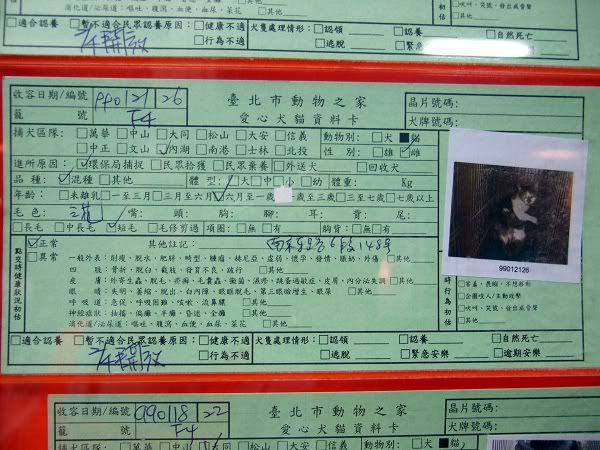 消化道/泌尿道:嘔吐、腹瀉、血便、血尿、菜花 □其他
□吠叫、哭號、發出威脅聲
□適合認養 □暫不適合民眾認養原因:□健康不適 犬隻處理情形:□認領 □認養 □自然死亡
□行為不適 □逃脫 □緊急
收容日期/編號 990121 26 臺北市動物之家 晶片號碼:
籠 號 F4 愛心犬貓資料卡 犬牌號碼:
捕犬區隊: □萬華 □中山 □大同 □松山 □大安 □信義 動物別:□犬 ■貓
□中正 □文山 ☑內湖 □南港 □士林 □北投 性 別:□雄 ☑雌
進所原因:☑環保局捕捉 □民眾拾獲 □民眾棄養 □外送犬 □回收犬
品 種:☑混種 □其他 體 型:□大 □中 □小 □幼 體重: Kg
年齡: □未離乳 □一至三月 □三月至六月 ☑六月至一歲 一歲至三歲 □三至七歲 □七歲以上
毛 色: 三花 嘴: 頭: 胸: 腳: 耳: 背: 尾:
□長毛 □中長毛 ☑短毛 □毛修剪過 項圈:□無 □有 胸背:□無 □有
點交時健康狀況初估
☑正常 其他註記: 南京東路6段148號
□異常 一般外表:削瘦、脫水、肥胖、畸型、腫瘤、赫尼亞、虛弱、懷孕、發情、脹奶、外傷 □其他
四 肢:骨折、脫臼、截肢、發育不良、跛行 □其他
眼 睛:失明、萎縮、脫出、白內障、眼瞼脫毛、第三眼瞼增生、眼屎 □其他
呼吸道:急促、呼吸困難、咳嗽、流鼻膿 □其他
神經症狀:抽搐、偏癱、半癱、昏迷、全癱 □其他
消化道/泌尿道:嘔吐、腹瀉、血便、血尿、菜花 □其他
99012126
□害羞、畏縮、不想移動
□企圖咬人/主動攻擊
□吠叫、哭號、發出威脅聲
□適合認養 □暫不適合民眾認養原因:□健康不適 犬隻處理情形:□認領 □認養 □自然死亡
未開放 □行為不適 □逃脫 □緊急安樂 □逾期安樂
收容日期/編號 990118 22 臺北市動物之家 晶片號碼:
籠 號 F4 愛心犬貓資料卡 犬牌號碼:
捕犬區隊: □萬華 □中山 □大同 □松山 □大安 □信義 動物別:□犬 ■貓